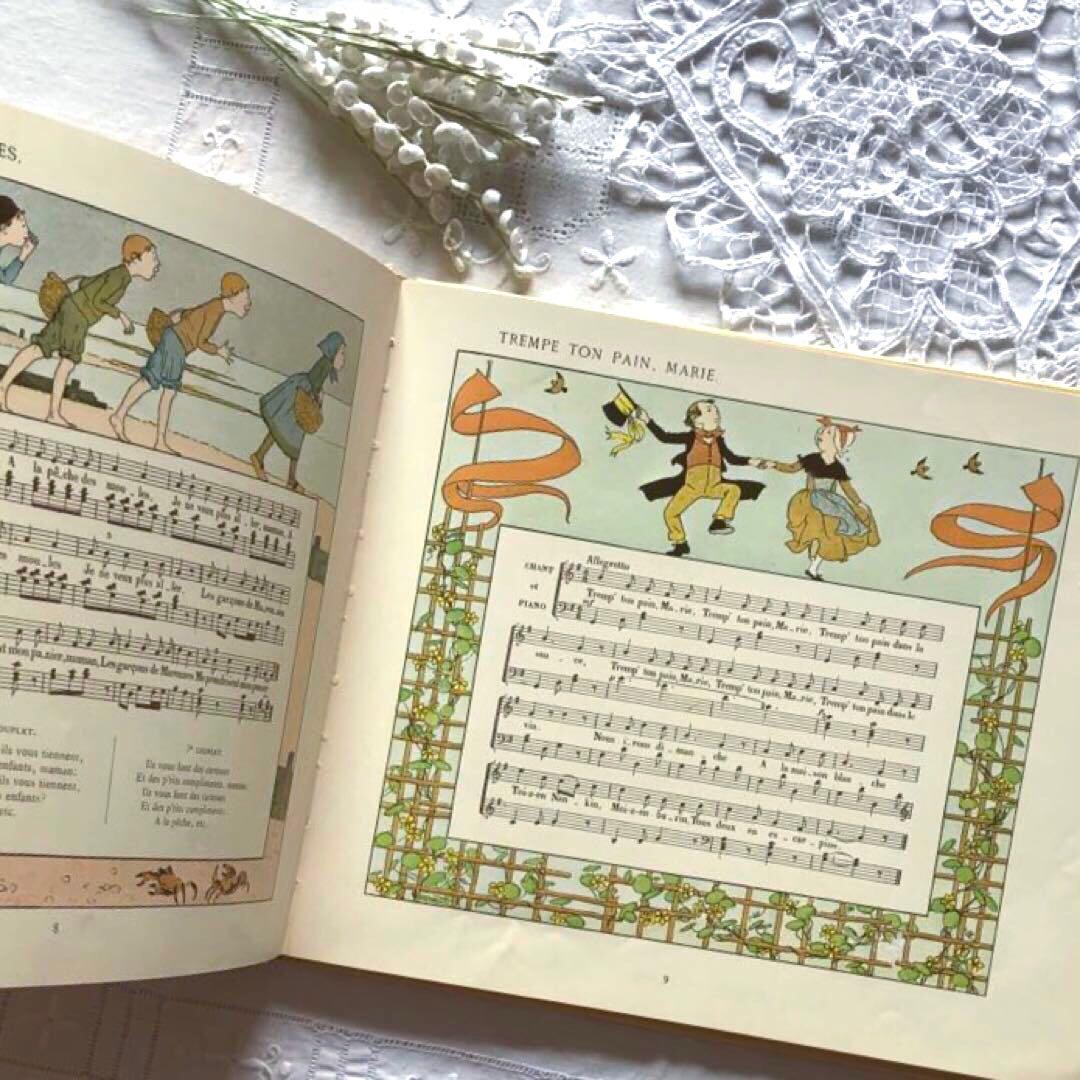 ES.
A la pê_che des mou_les, Je ne veux plus al_ler, maman, A
es mou_les Je ne veux plus al_ler Les garçons de Ma_ren_nes
t mon pa_nier, maman, Les garçons de Marennes
OUPLET.
ils vous tiennent,
enfants, maman:
ils vous tiennent,
enfants?
etc.
Ils vous font des caresses
Et des p'tits compliments, maman.
Ils vous font des caresses
Et des p'tits compliments.
A la pêche, etc.
8
TREMPE TON PAIN, MARIE.
CHANT
et
PIANO
Allegretto
mf
Tremp' ton pain, Ma_rie, Tremp' ton pain, Ma_rie, Tremp' ton pain dans la
sau _ ce, Tremp' ton pain, Ma_rie, Tremp' ton pain, Ma_rie, Tremp' ton pain dans le
vin. Nous i_rons di_man_che A la mai_son blan_che
Toi z-en Nan_kin, Moi z-en ba_zin, Tous deux en es_car_pins.
9